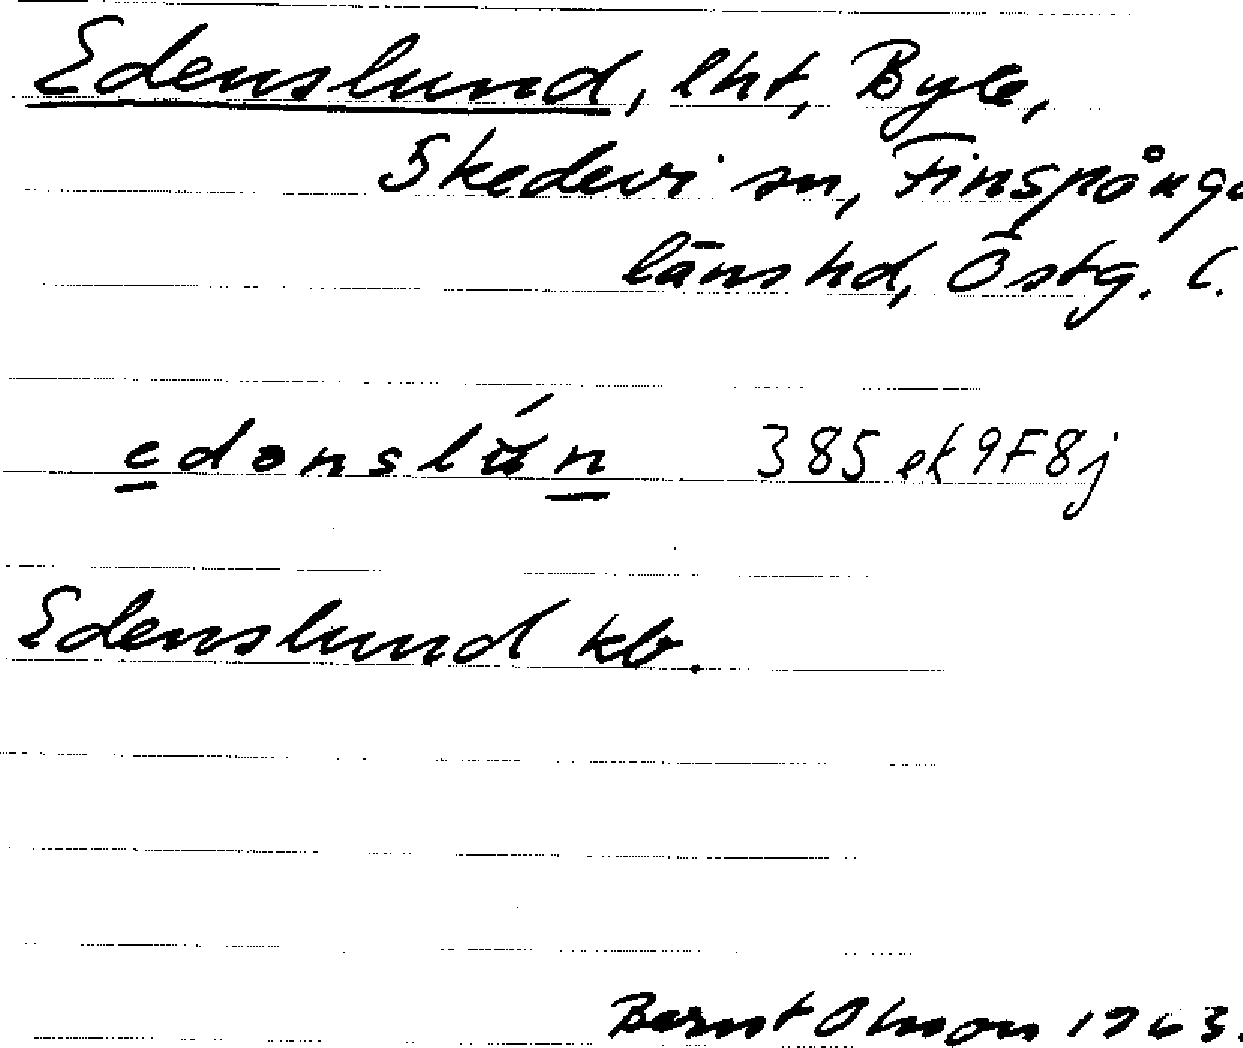 Edenslund, lht, Byle,
Skedevi sn, Finspånga
läns hd, Östg. l.
385 ek 9F8j
Edenslund kb.
Bernt Olsson 1963.